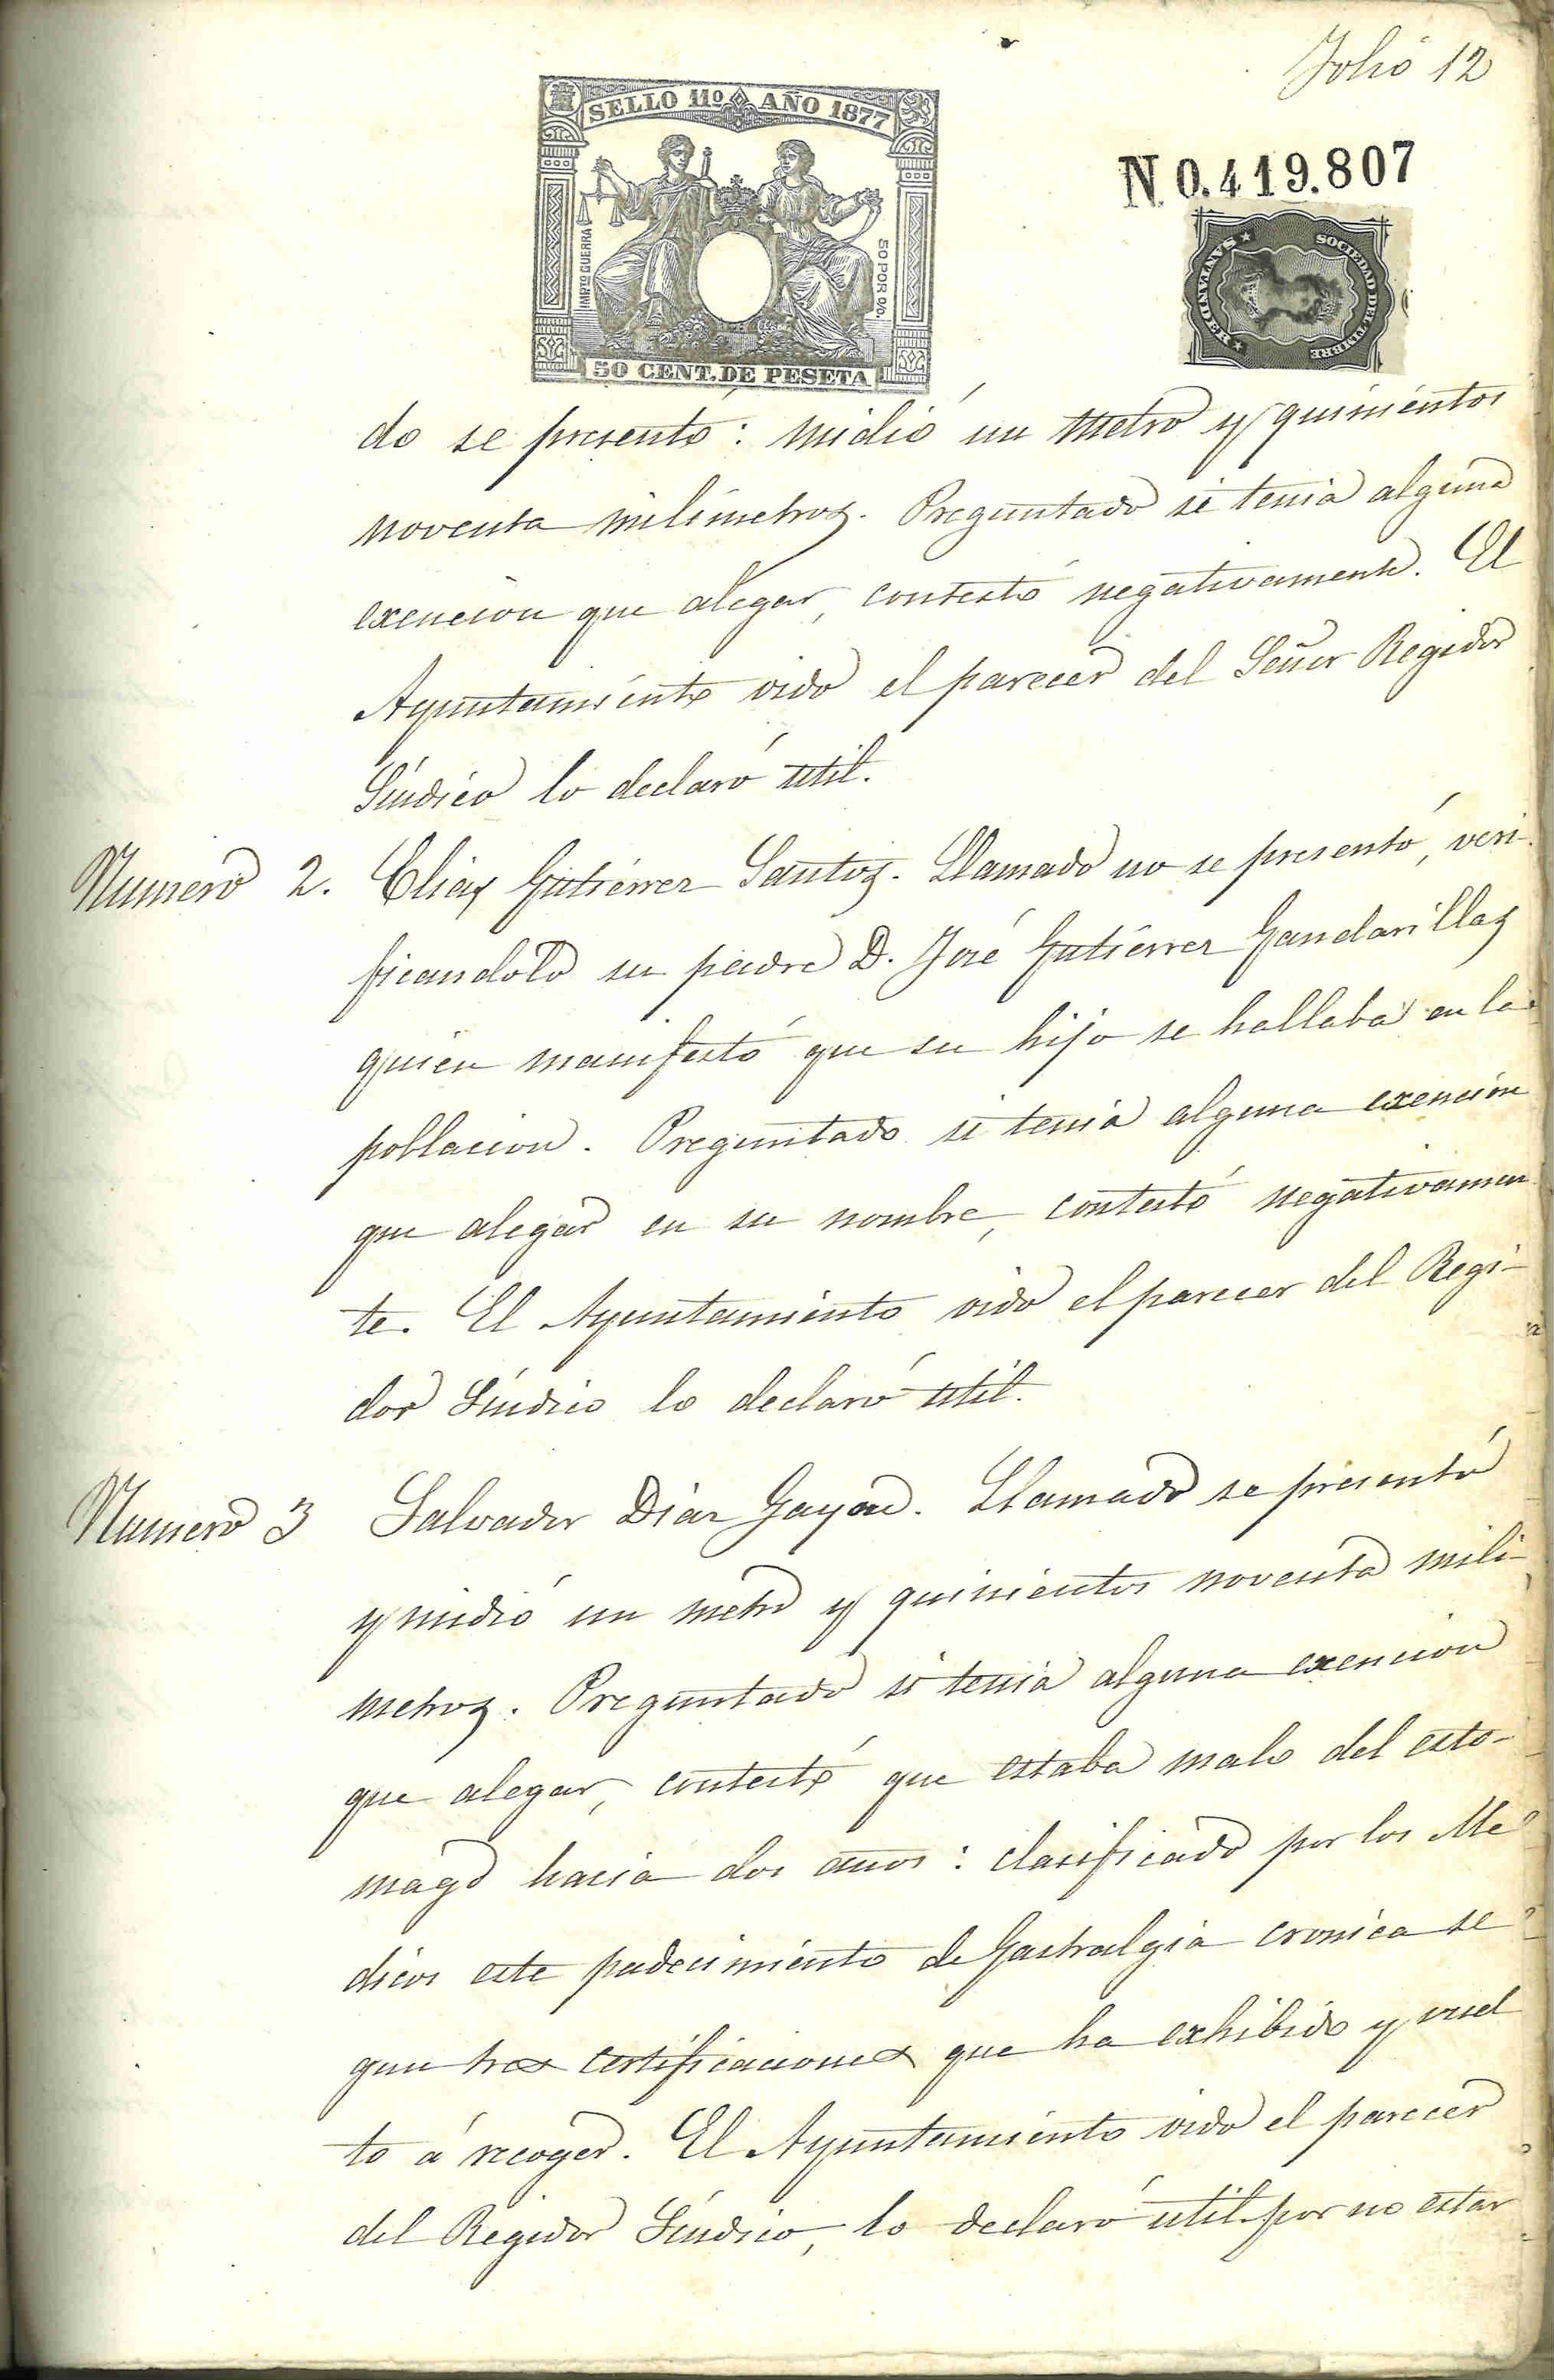 Folio 12
SELLO 11º AÑO 1877
IMPTO GUERRA
50 POR 0/0.
50 CENT. DE PESETA
N. 0.419.807
SOCIEDAD DEL TIMBRE
★ SANTANDER ★
do se presentó: midió un metro y quinientos
noventa milimetros. Preguntado si tenia alguna
exencion que alegar, contestó negativamente. El
Ayuntamiento oido el parecer del Señor Regidor
Síndico lo declaró util.
Numero 2. Elias Gutiérrez Santos. Llamado no se presentó, veri-
ficandolo su padre D. José Gutiérrez Gandarillas
quien manifestó que su hijo se hallaba en la
poblacion. Preguntado si tenia alguna exencion
que alegar en su nombre, contestó negativamen
te. El Ayuntamiento oido el parecer del Regi-
dor Síndico lo declaró util.
Numero 3 Salvador Diaz Gayon. Llamado se presentó
y midió un metro y quinientos noventa mili-
metros. Preguntado si tenia alguna exencion
que alegar, contestó que estaba malo del esto-
mago hacia dos años: clasificado por los Me
dicos este padecimiento de Gastralgia cronica se
gun tres certificaciones que ha exhibido y vuel
to á recoger. El Ayuntamiento oido el parecer
del Regidor Síndico, lo declaró util por no estar